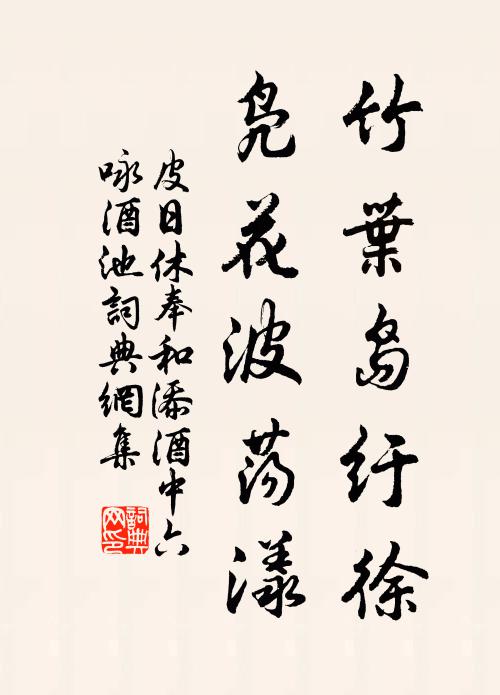 竹葉島紆徐
鳧花波荡漾
皮日休奉和添酒中六
咏酒池詞典網集
詞典网印